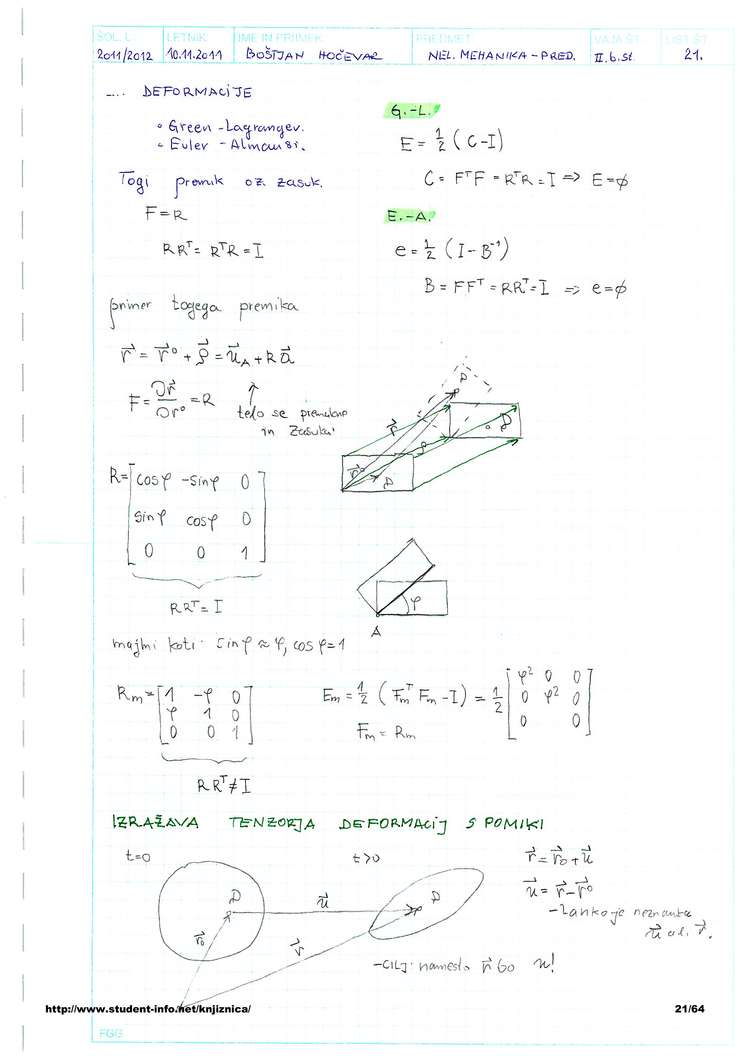 ŠOL. L. LETNIK IME IN PRIIMEK PREDMET VAJA ŠT. LIST ŠT.
2011/2012 10.11.2011 BOŠTJAN HOČEVAR NEL. MEHANIKA - PRED. II.b.st. 21.
.... DEFORMACIJE
◦ Green - Lagrangev.
◦ Euler - Almansi.
G.-L.
E = 1/2 (C - I)
C = FᵀF = RᵀR = I => E = ϕ
Togi premik oz. zasuk.
F = R
RRᵀ = RᵀR = I
E.-A.
e = 1/2 (I - B⁻¹)
B = FFᵀ = RRᵀ = I => e = ϕ
primer togega premika
r⃗ = r⃗⁰ + ρ⃗ = u⃗_A + R a⃗
F = ∂r⃗/∂r⃗⁰ = R
telo se premakne
in zasuka!
r⃗ r⃗⁰ ρ D D D
R = [cosφ -sinφ 0
sinφ cosφ 0
0 0 1]
RRᵀ = I
φ
A
majhni koti: sinφ ≈ φ, cosφ = 1
Rₘ = [1 -φ 0
φ 1 0
0 0 1]
RRᵀ ≠ I
Eₘ = 1/2 (FₘᵀFₘ - I) = 1/2 [φ² 0 0
0 φ² 0
0 0]
Fₘ = Rₘ
IZRAŽAVA TENZORJA DEFORMACIJ S POMIKI
t=0 t>0
r⃗ = r⃗₀ + u⃗
u⃗ = r⃗ - r⃗⁰
- Lahko je neznanka
u⃗ ali r⃗.
D u⃗ D
r⃗₀ r⃗
- CILJ: namesto r⃗ bo u!
http://www.student-info.net/knjiznica/ 21/64
FGG